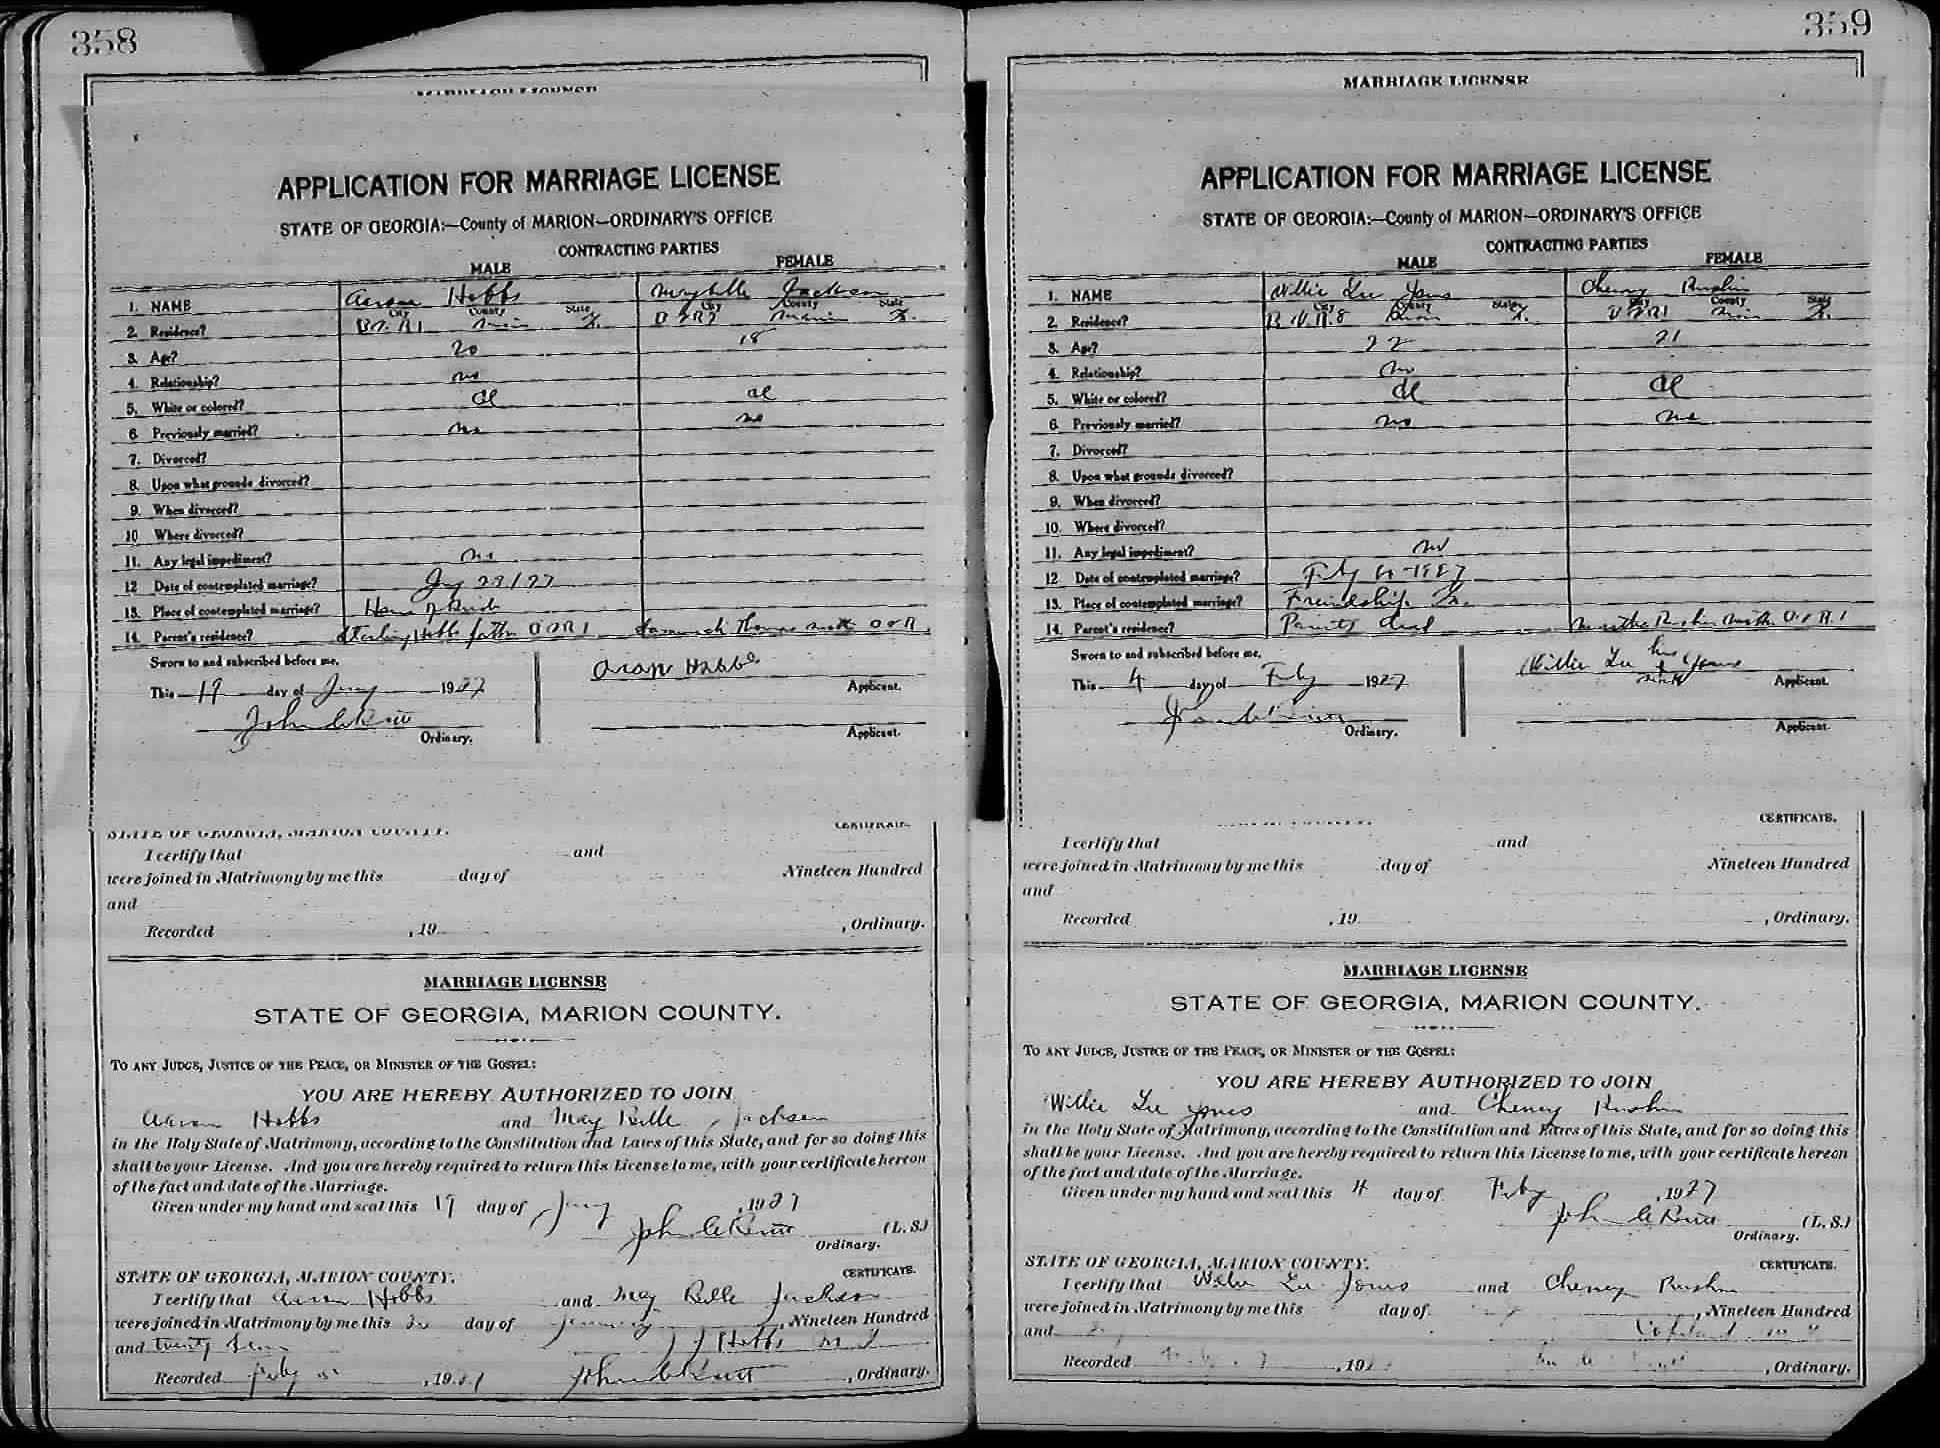 358
MARRIAGE LICENSE
APPLICATION FOR MARRIAGE LICENSE
STATE OF GEORGIA:—County of MARION—ORDINARY'S OFFICE
CONTRACTING PARTIES
MALE FEMALE
1. NAME Aaron Hobbs Maybelle Jackson
City County State City County State
2. Residence?
3. Age? 20 18
4. Relationship? no
5. White or colored? Cl Cl
6. Previously married? no no
7. Divorced?
8. Upon what grounds divorced?
9. When divorced?
10. Where divorced?
11. Any legal impediment? no
12. Date of contemplated marriage?
13. Place of contemplated marriage? Home of Bride
14. Parent's residence? Sterling Hobbs father
Sworn to and subscribed before me,
This 19 day of Jany 1927
Ordinary.
Aron Hobbs
Applicant.
Applicant.
STATE OF GEORGIA, MARION COUNTY.
CERTIFICATE.
I certify that and
were joined in Matrimony by me this day of Nineteen Hundred
and
Recorded , 19 , Ordinary.
MARRIAGE LICENSE
STATE OF GEORGIA, MARION COUNTY.
TO ANY JUDGE, JUSTICE OF THE PEACE, OR MINISTER OF THE GOSPEL:
YOU ARE HEREBY AUTHORIZED TO JOIN
Aaron Hobbs and May Belle Jackson
in the Holy State of Matrimony, according to the Constitution and Laws of this State, and for so doing this
shall be your License. And you are hereby required to return this License to me, with your certificate hereon
of the fact and date of the Marriage.
Given under my hand and seal this 19 day of Jany , 1927
John (L. S.)
Ordinary.
STATE OF GEORGIA, MARION COUNTY.
CERTIFICATE.
I certify that Aaron Hobbs and May Belle Jackson
were joined in Matrimony by me this day of January , Nineteen Hundred
and twenty Hobbs
Recorded Feby , 1927 John , Ordinary.
359
MARRIAGE LICENSE
APPLICATION FOR MARRIAGE LICENSE
STATE OF GEORGIA:—County of MARION—ORDINARY'S OFFICE
CONTRACTING PARTIES
MALE FEMALE
1. NAME Willie Lee Jones Cheney Rushin
City County State City County State
2. Residence?
3. Age? 22 21
4. Relationship? no
5. White or colored? Cl Cl
6. Previously married? no no
7. Divorced?
8. Upon what grounds divorced?
9. When divorced?
10. Where divorced?
11. Any legal impediment? no
12. Date of contemplated marriage? Feby
13. Place of contemplated marriage? Friendship
14. Parent's residence? Rushin
Sworn to and subscribed before me,
This 4 day of Feby 1927
Ordinary.
Willie Lee his x mark Jones
Applicant.
Applicant.
CERTIFICATE.
I certify that and
were joined in Matrimony by me this day of Nineteen Hundred
and
Recorded , 19 , Ordinary.
MARRIAGE LICENSE
STATE OF GEORGIA, MARION COUNTY.
TO ANY JUDGE, JUSTICE OF THE PEACE, OR MINISTER OF THE GOSPEL:
YOU ARE HEREBY AUTHORIZED TO JOIN
Willie Lee Jones and Cheney Rushin
in the Holy State of Matrimony, according to the Constitution and Laws of this State, and for so doing this
shall be your License. And you are hereby required to return this License to me, with your certificate hereon
of the fact and date of the Marriage.
Given under my hand and seal this 4 day of Feby , 1927
John (L. S.)
Ordinary.
STATE OF GEORGIA, MARION COUNTY.
CERTIFICATE.
I certify that Willie Lee Jones and Cheney Rushin
were joined in Matrimony by me this day of , Nineteen Hundred
and Copeland
Recorded , 19 , Ordinary.